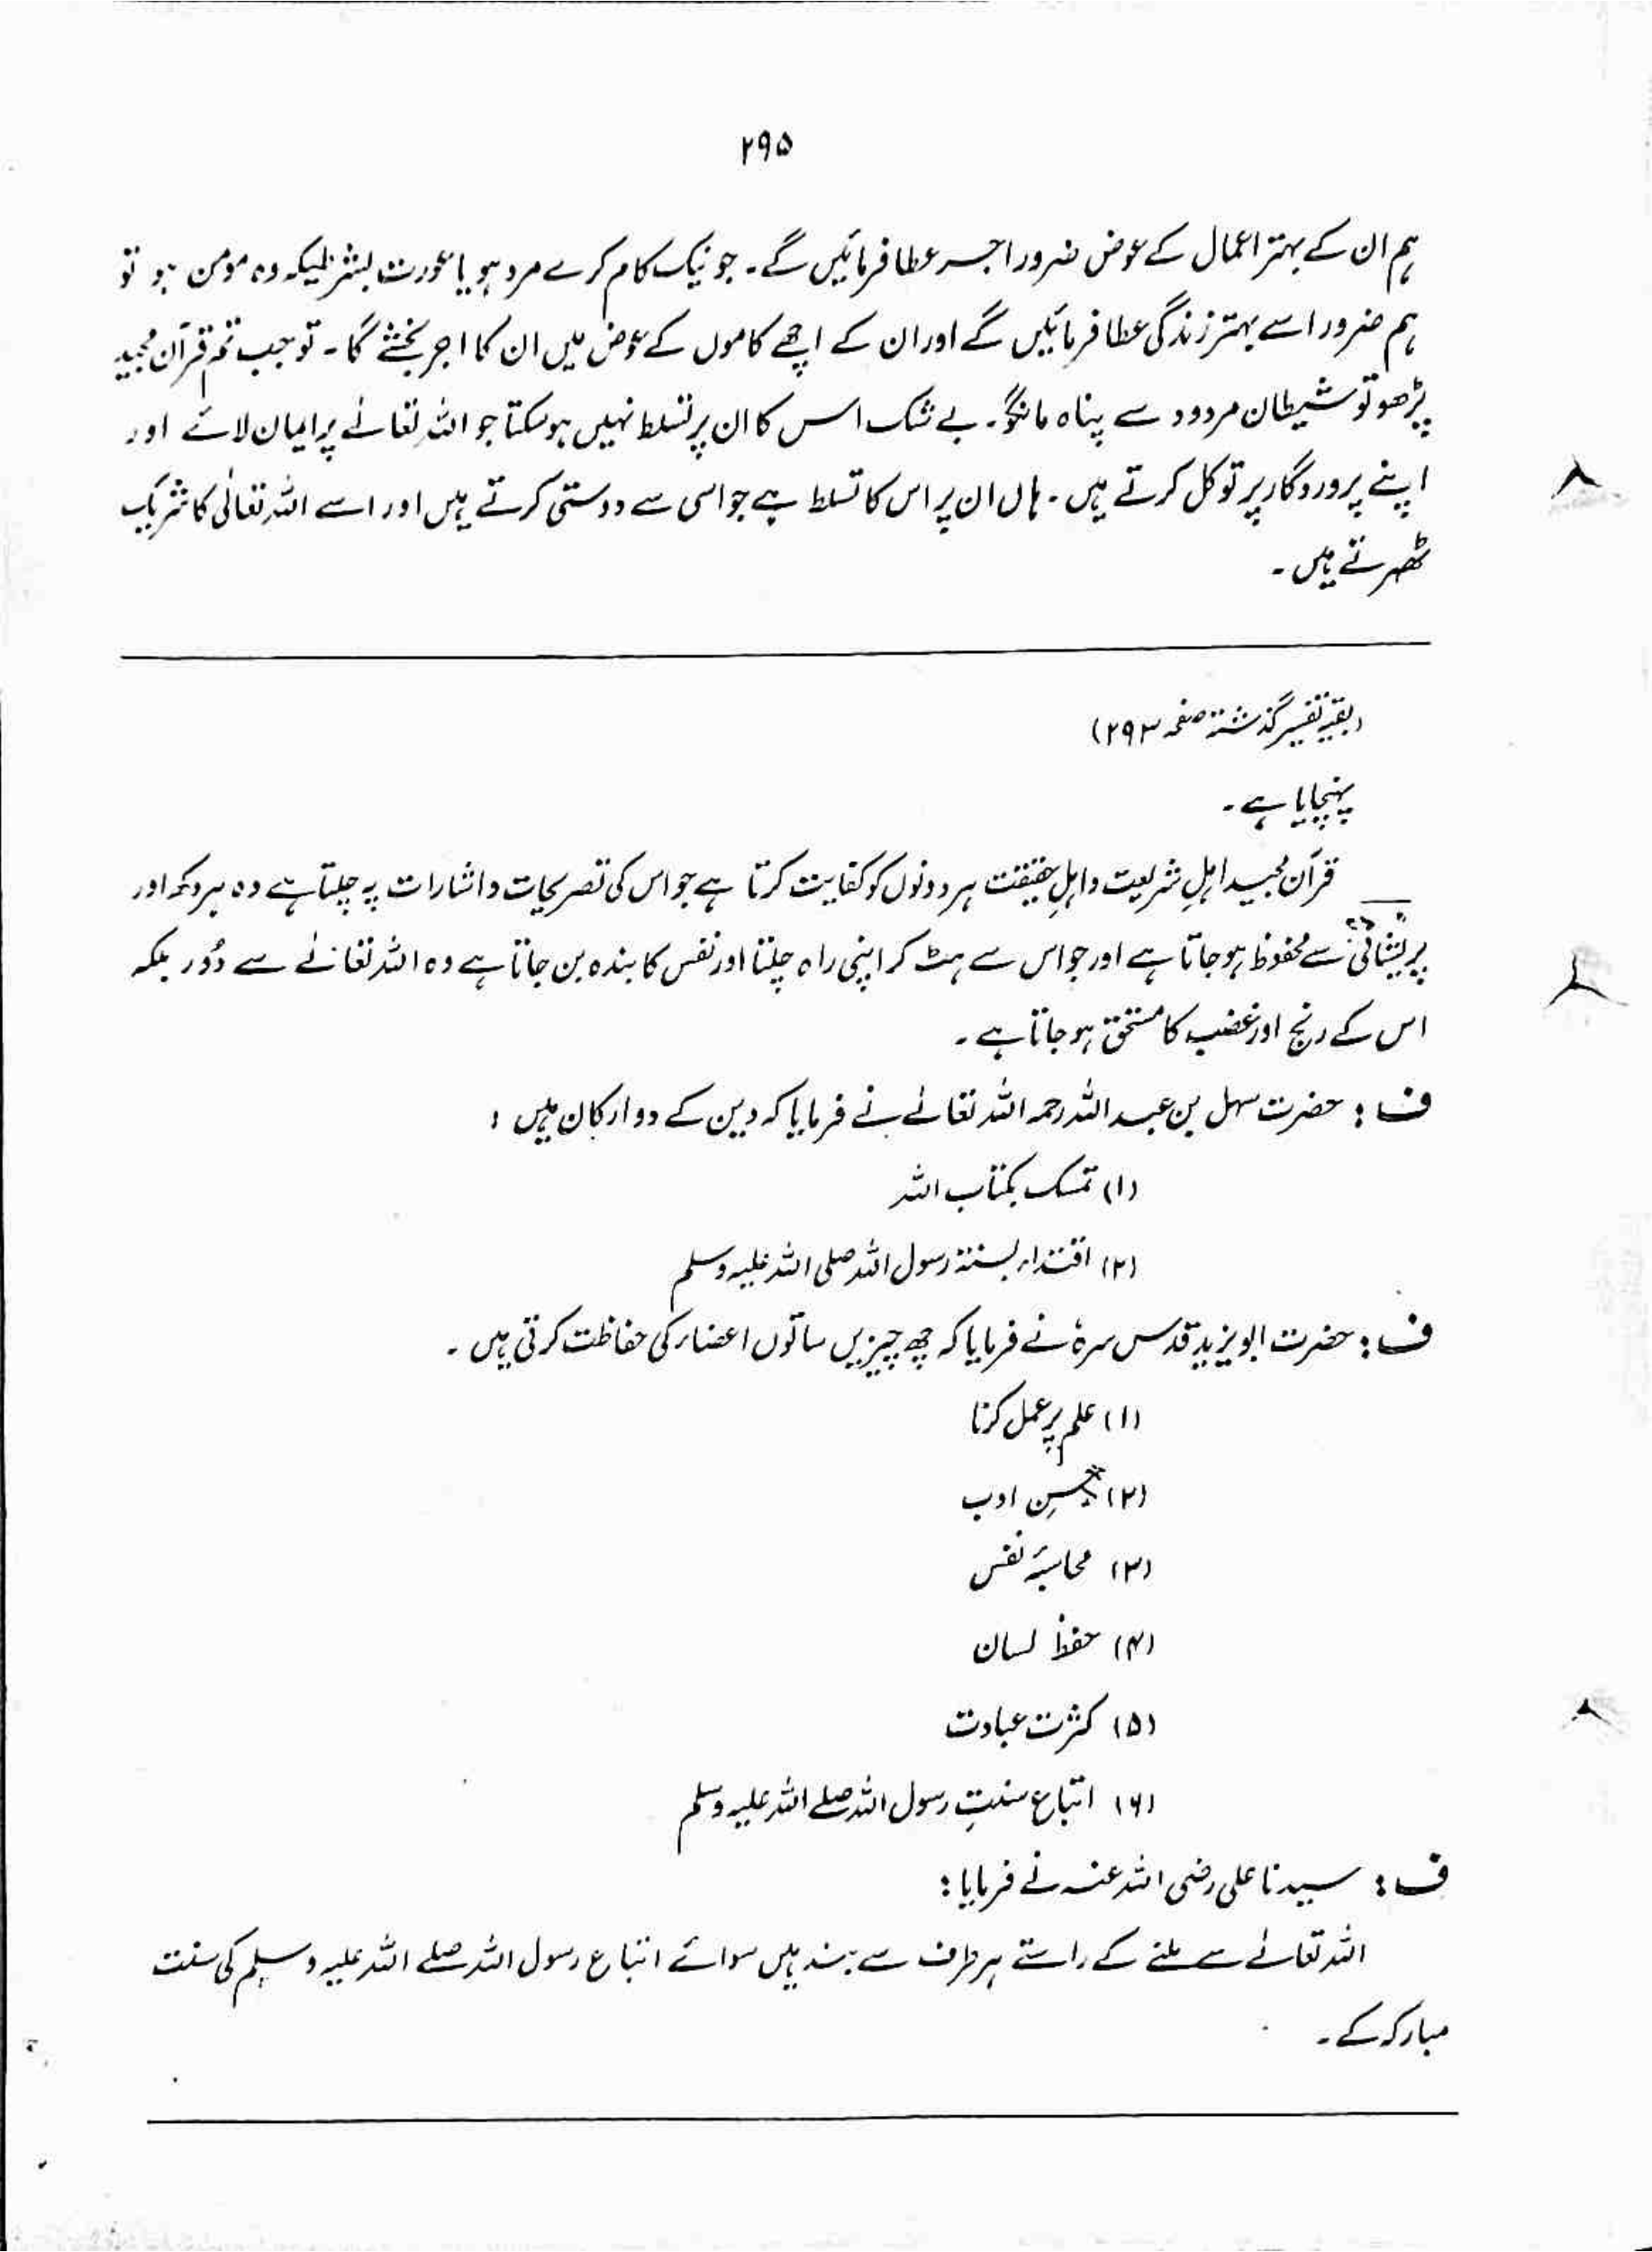 ۲۹۵
ہم ان کے بہتر اعمال کے عوض ضرور اجر عطا فرمائیں گے۔ جو نیک کام کرے مرد ہو یا عورت بشرطیکہ وہ مومن ہو تو
ہم ضرور اسے بہتر زندگی عطا فرمائیں گے اور ان کے اچھے کاموں کے عوض میں ان کا اجر بخشے گا۔ تو جب تم قرآن مجید
پڑھو تو شیطان مردود سے پناہ مانگو۔ بے شک اس کا ان پر تسلط نہیں ہوسکتا جو اللہ تعالےٰ پر ایمان لائے اور
اپنے پروردگار پر توکل کرتے ہیں۔ ہاں ان پر اس کا تسلط ہے جو اسی سے دوستی کرتے ہیں اور اسے اللہ تعالیٰ کا شریک
ٹھہرتے ہیں۔
(بقیہ تفسیر گذشتہ صفحہ ۲۹۳)
پہنچایا ہے۔
قرآن مجید اہلِ شریعت و اہلِ حقیقت ہر دونوں کو کفایت کرتا ہے جو اس کی تصریحات و اشارات پہ چلتا ہے وہ ہر دکھ اور
پریشانی سے محفوظ ہو جاتا ہے اور جو اس سے ہٹ کر اپنی راہ چلتا اور نفس کا بندہ بن جاتا ہے وہ اللہ تعالےٰ سے دُور بلکہ
اس کے رنج اور غضب کا مستحق ہو جاتا ہے۔
ف : حضرت سہل بن عبد اللہ رحمہ اللہ تعالےٰ نے فرمایا کہ دین کے دو ارکان ہیں :
(۱) تمسک بکتاب اللہ
(۲) اقتداء بسنۃ رسول اللہ صلی اللہ علیہ وسلم
ف : حضرت ابو یزید قدس سرہٗ نے فرمایا کہ چھ چیزیں ساتوں اعضاء کی حفاظت کرتی ہیں۔
(۱) علم پر عمل کرنا
(۲) حسنِ ادب
(۳) محاسبۂ نفس
(۴) حفظ لسان
(۵) کثرت عبادت
(۶) اتباع سنتِ رسول اللہ صلے اللہ علیہ وسلم
ف : سیدنا علی رضی اللہ عنہ نے فرمایا :
اللہ تعالےٰ سے ملنے کے راستے ہر طرف سے بند ہیں سوائے اتباع رسول اللہ صلے اللہ علیہ وسلم کی سنت
مبارکہ کے۔